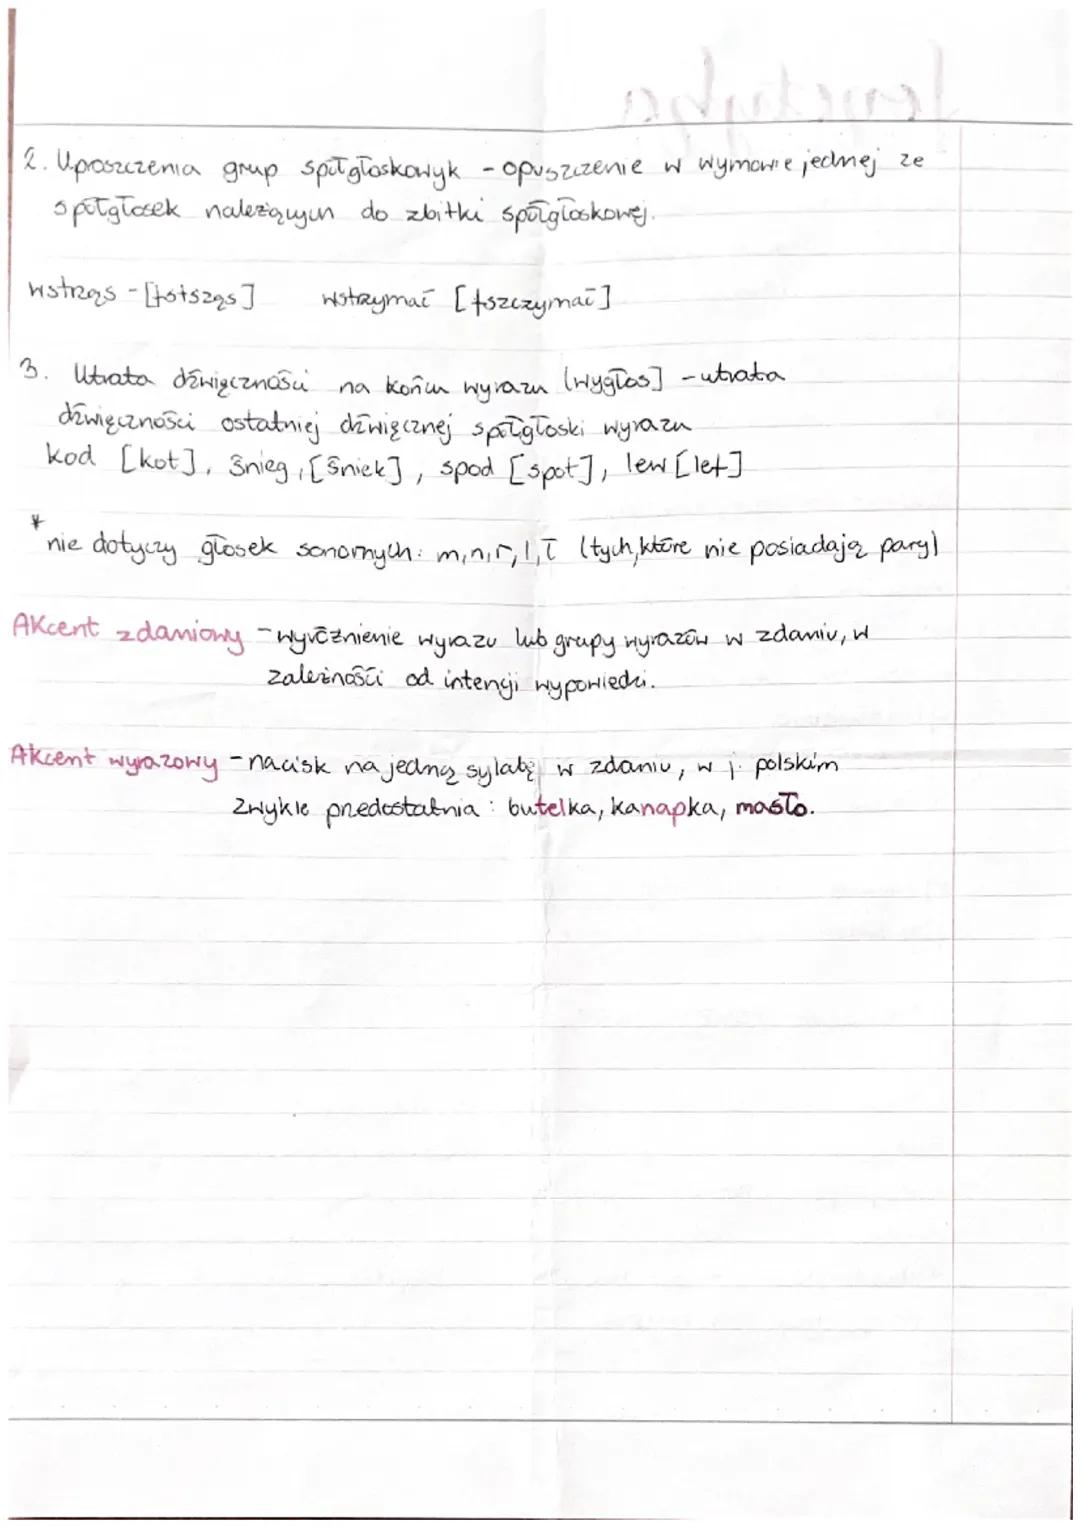 2. Uproszczenia grup spółgłoskowyk - opuszczenie w wymowie jednej ze
spółgłosek należącycn do zbitki spółgłoskowej.
wstrząs - [fstsząs] wstrzymać [fszczymać]
3. Utrata dźwięczności na końcu wyrazu (wygłos] - utrata
dźwięczności ostatniej dźwięcznej spółgłoski wyrazu
kod [kot], śnieg, [śniek], spod [spot], lew [lef]
* nie dotyczy głosek sonornych: m, n, r, l, ł (tych, które nie posiadają pary)
Akcent zdaniowy - wyróżnienie wyrazu lub grupy wyrazów w zdaniu, w
zależności od intencji wypowiedzi.
Akcent wyrazowy - nacisk na jedną sylabę w zdaniu, w j. polskim
zwykle przedostatnia: butelka, kanapka, masło.